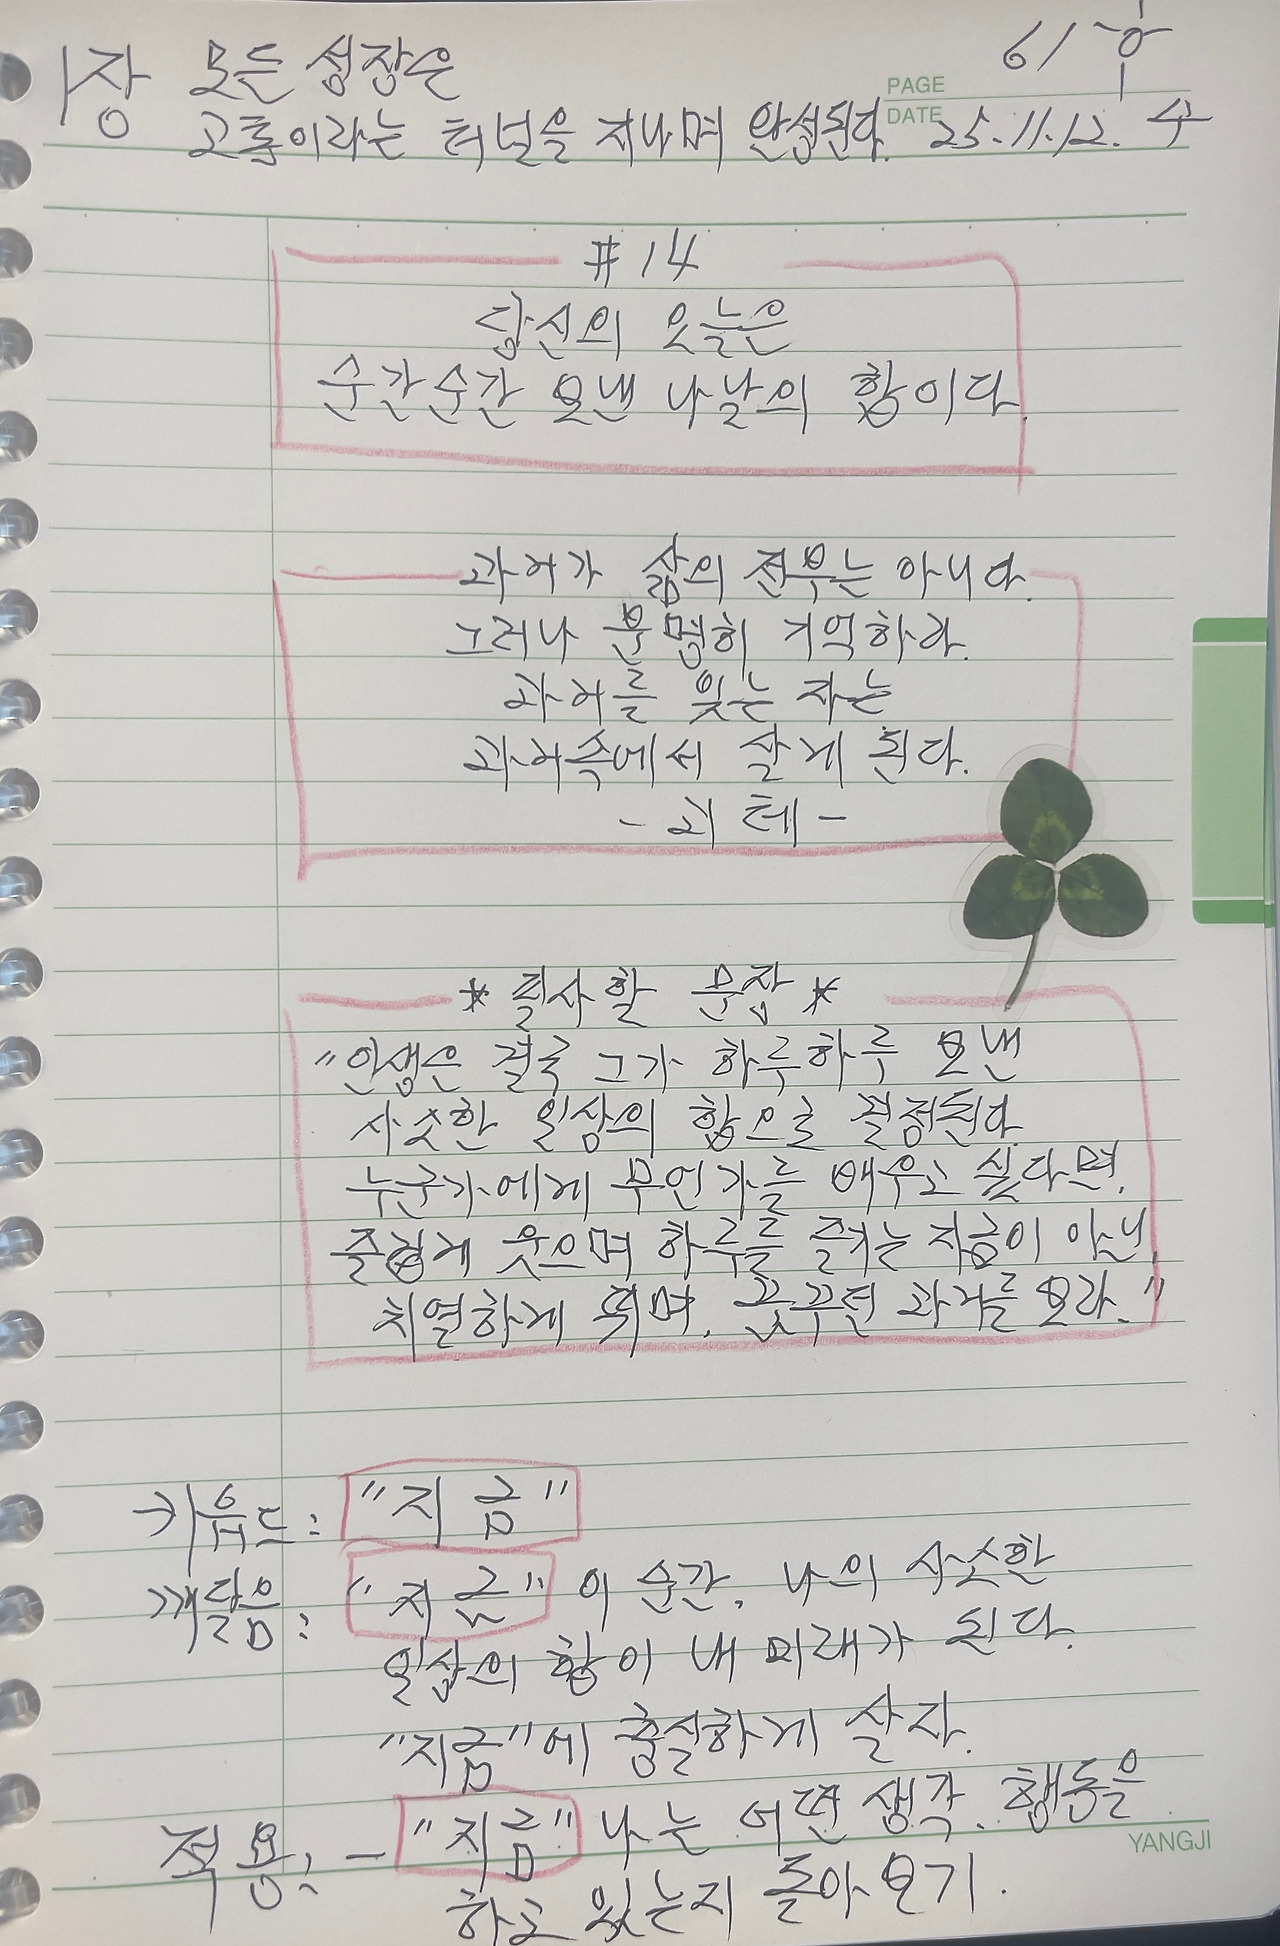 1장 모든 성장은
고통이라는 터널을 지나며 완성된다.
61
PAGE
DATE 25.11.12. 수
#14
당신의 오늘은
순간순간 보낸 나날의 합이다.
과거가 삶의 전부는 아니다.
그러나 분명히 기억하라.
과거를 잊는 자는
과거속에서 살게 된다.
- 괴테 -
* 필사할 문장 *
"인생은 결국 그가 하루하루 보낸
사소한 일상의 합으로 결정된다.
누군가에게 무언가를 배우고 싶다면,
즐겁게 웃으며 하루를 즐기는 지금이 아닌,
치열하게 뛰며, 꿈꾸던 과거를 보라."
→키워드: "지금"
깨달음: "지금" 이 순간, 나의 사소한
일상의 합이 내 미래가 된다.
"지금"에 충실하게 살자.
적용: - "지금" 나는 어떤 생각, 행동을
하고 있는지 돌아보기.
YANGJI